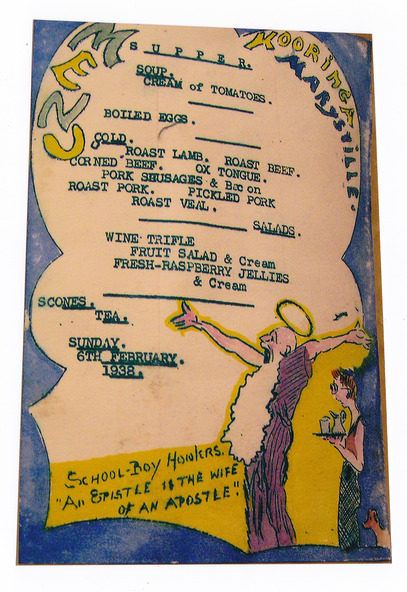 MENU
KOORINGA
MARYSVILLE.
SUPPER.
SOUP.
CREAM of TOMATOES.
BOILED EGGS.
COLD.
ROAST LAMB. ROAST BEEF.
CORNED BEEF. OX TONGUE.
PORK SAUSAGES & Bacon
ROAST PORK. PICKLED PORK
ROAST VEAL.
SALADS.
WINE TRIFLE
FRUIT SALAD & Cream
FRESH-RASPBERRY JELLIES
& Cream
SCONES.
TEA.
SUNDAY.
6TH FEBRUARY.
1938.
SCHOOL-BOY HOWLERS.
"An EPISTLE IS THE WIFE
OF AN APOSTLE".